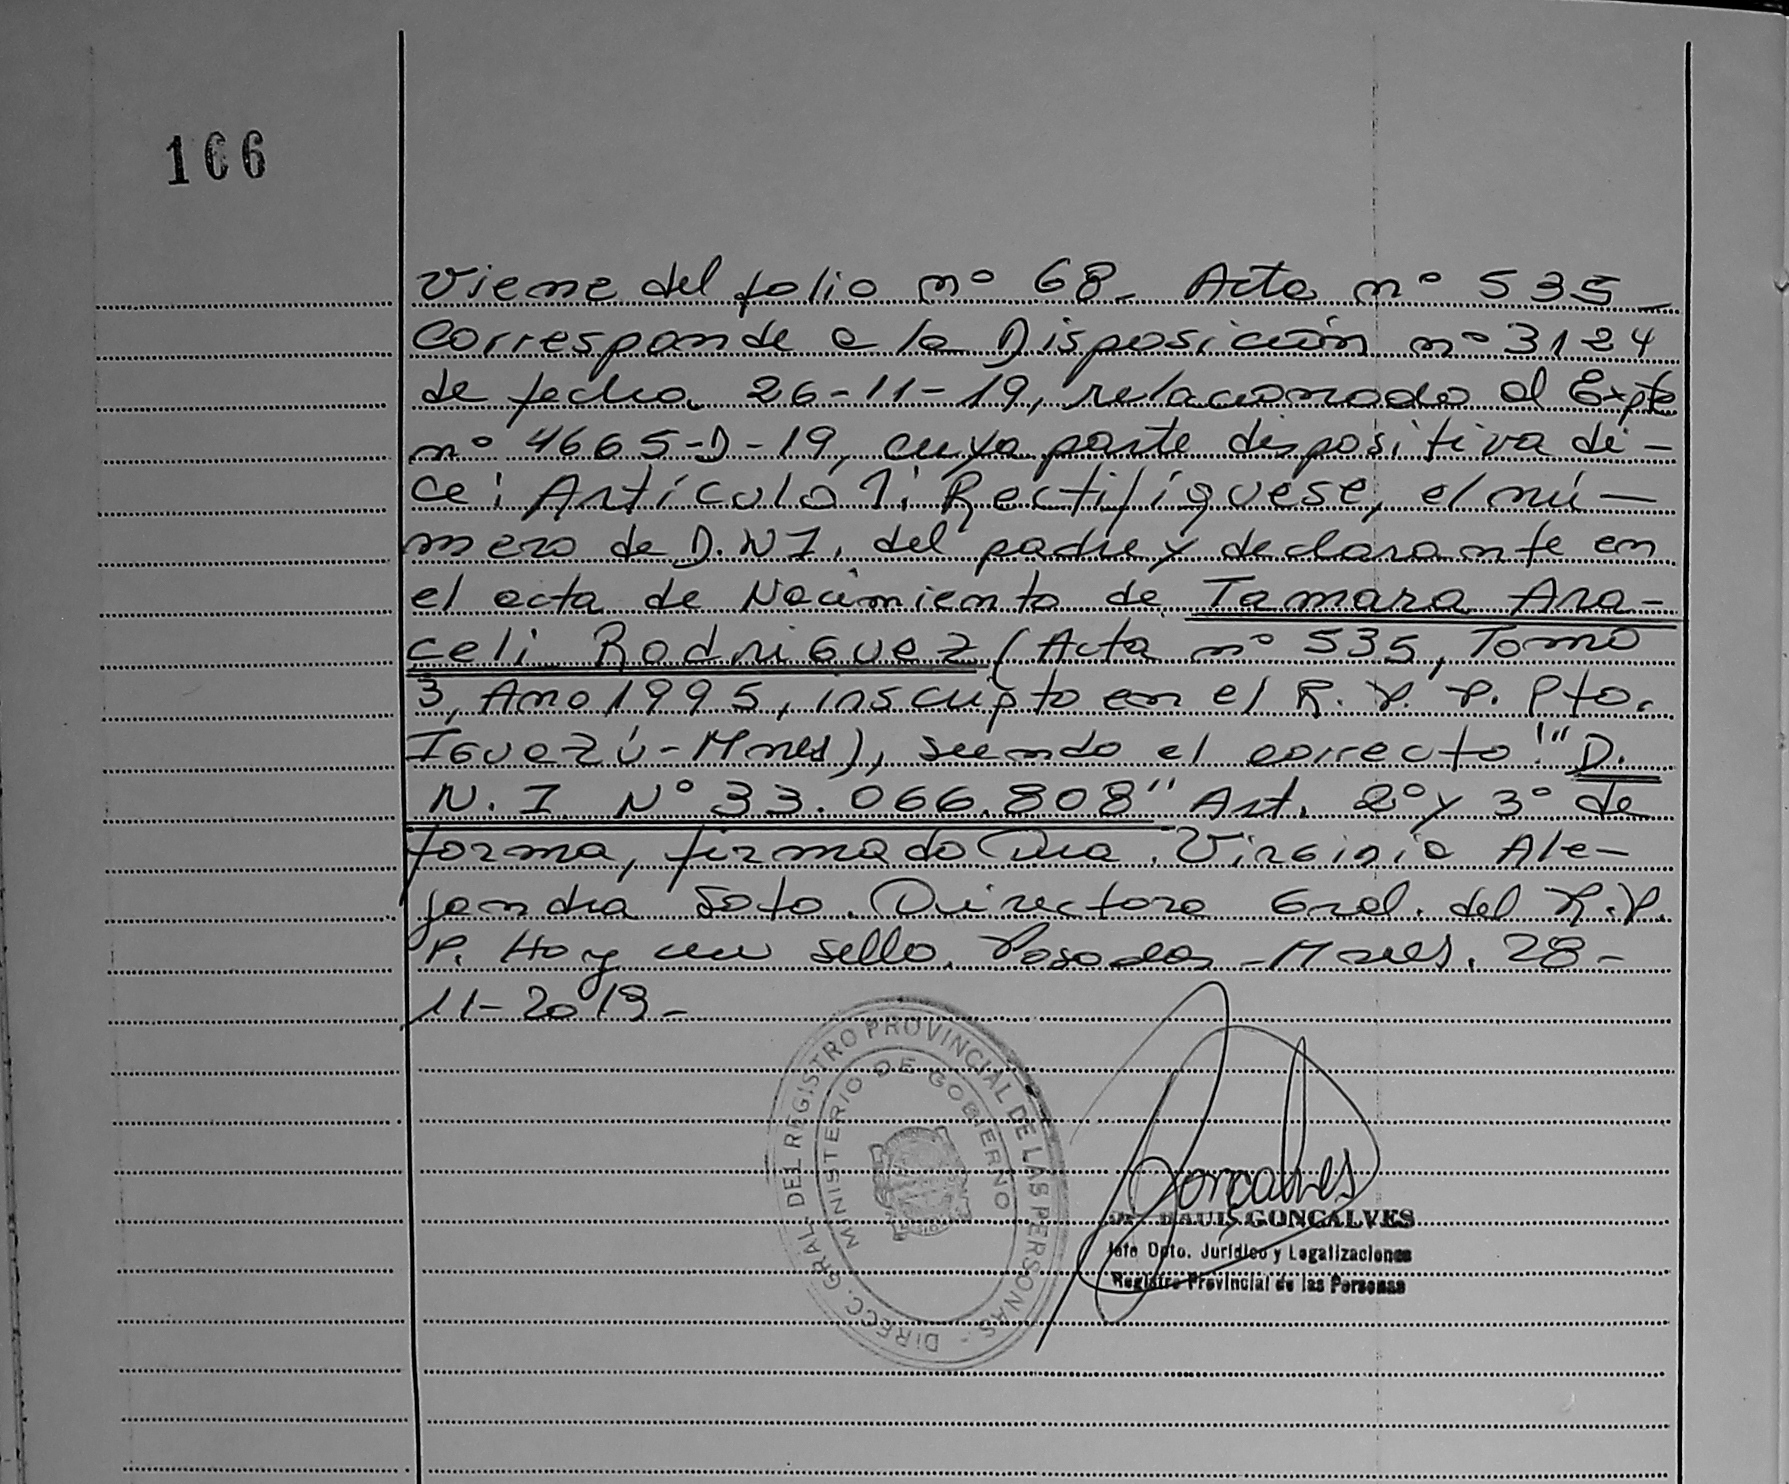 166
Viene del folio nº 68- Acta nº 535-
Corresponde a la Disposición nº 3124
de fecha 26-11-19, relacionado al Expte
nº 4665-D-19, cuya parte dispositiva di-
ce: Artículo 1: Rectifíquese, el nú-
mero de D.N.I. del padre y declarante en
el acta de Nacimiento de Tamara Ara-
celi Rodriguez (Acta nº 535, Tomo
3, Año 1995, inscripto en el R.P.P. Pto.
Iguazú-Mnes), siendo el correcto: "D.
N.I Nº 33.066.808" Art. 2º y 3º de
forma, firmado Dra. Virginia Ale-
jandra Soto. Directora Gral. del R.P.
P. Hay un sello. Posadas-Mnes. 28-
11-2019-
DIRECC. GRAL. DEL REGISTRO PROVINCIAL DE LAS PERSONAS -
MINISTERIO DE GOBIERNO
Goncalves
GONCALVES
Jefe Dpto. Jurídico y Legalizaciones
Registro Provincial de las Personas